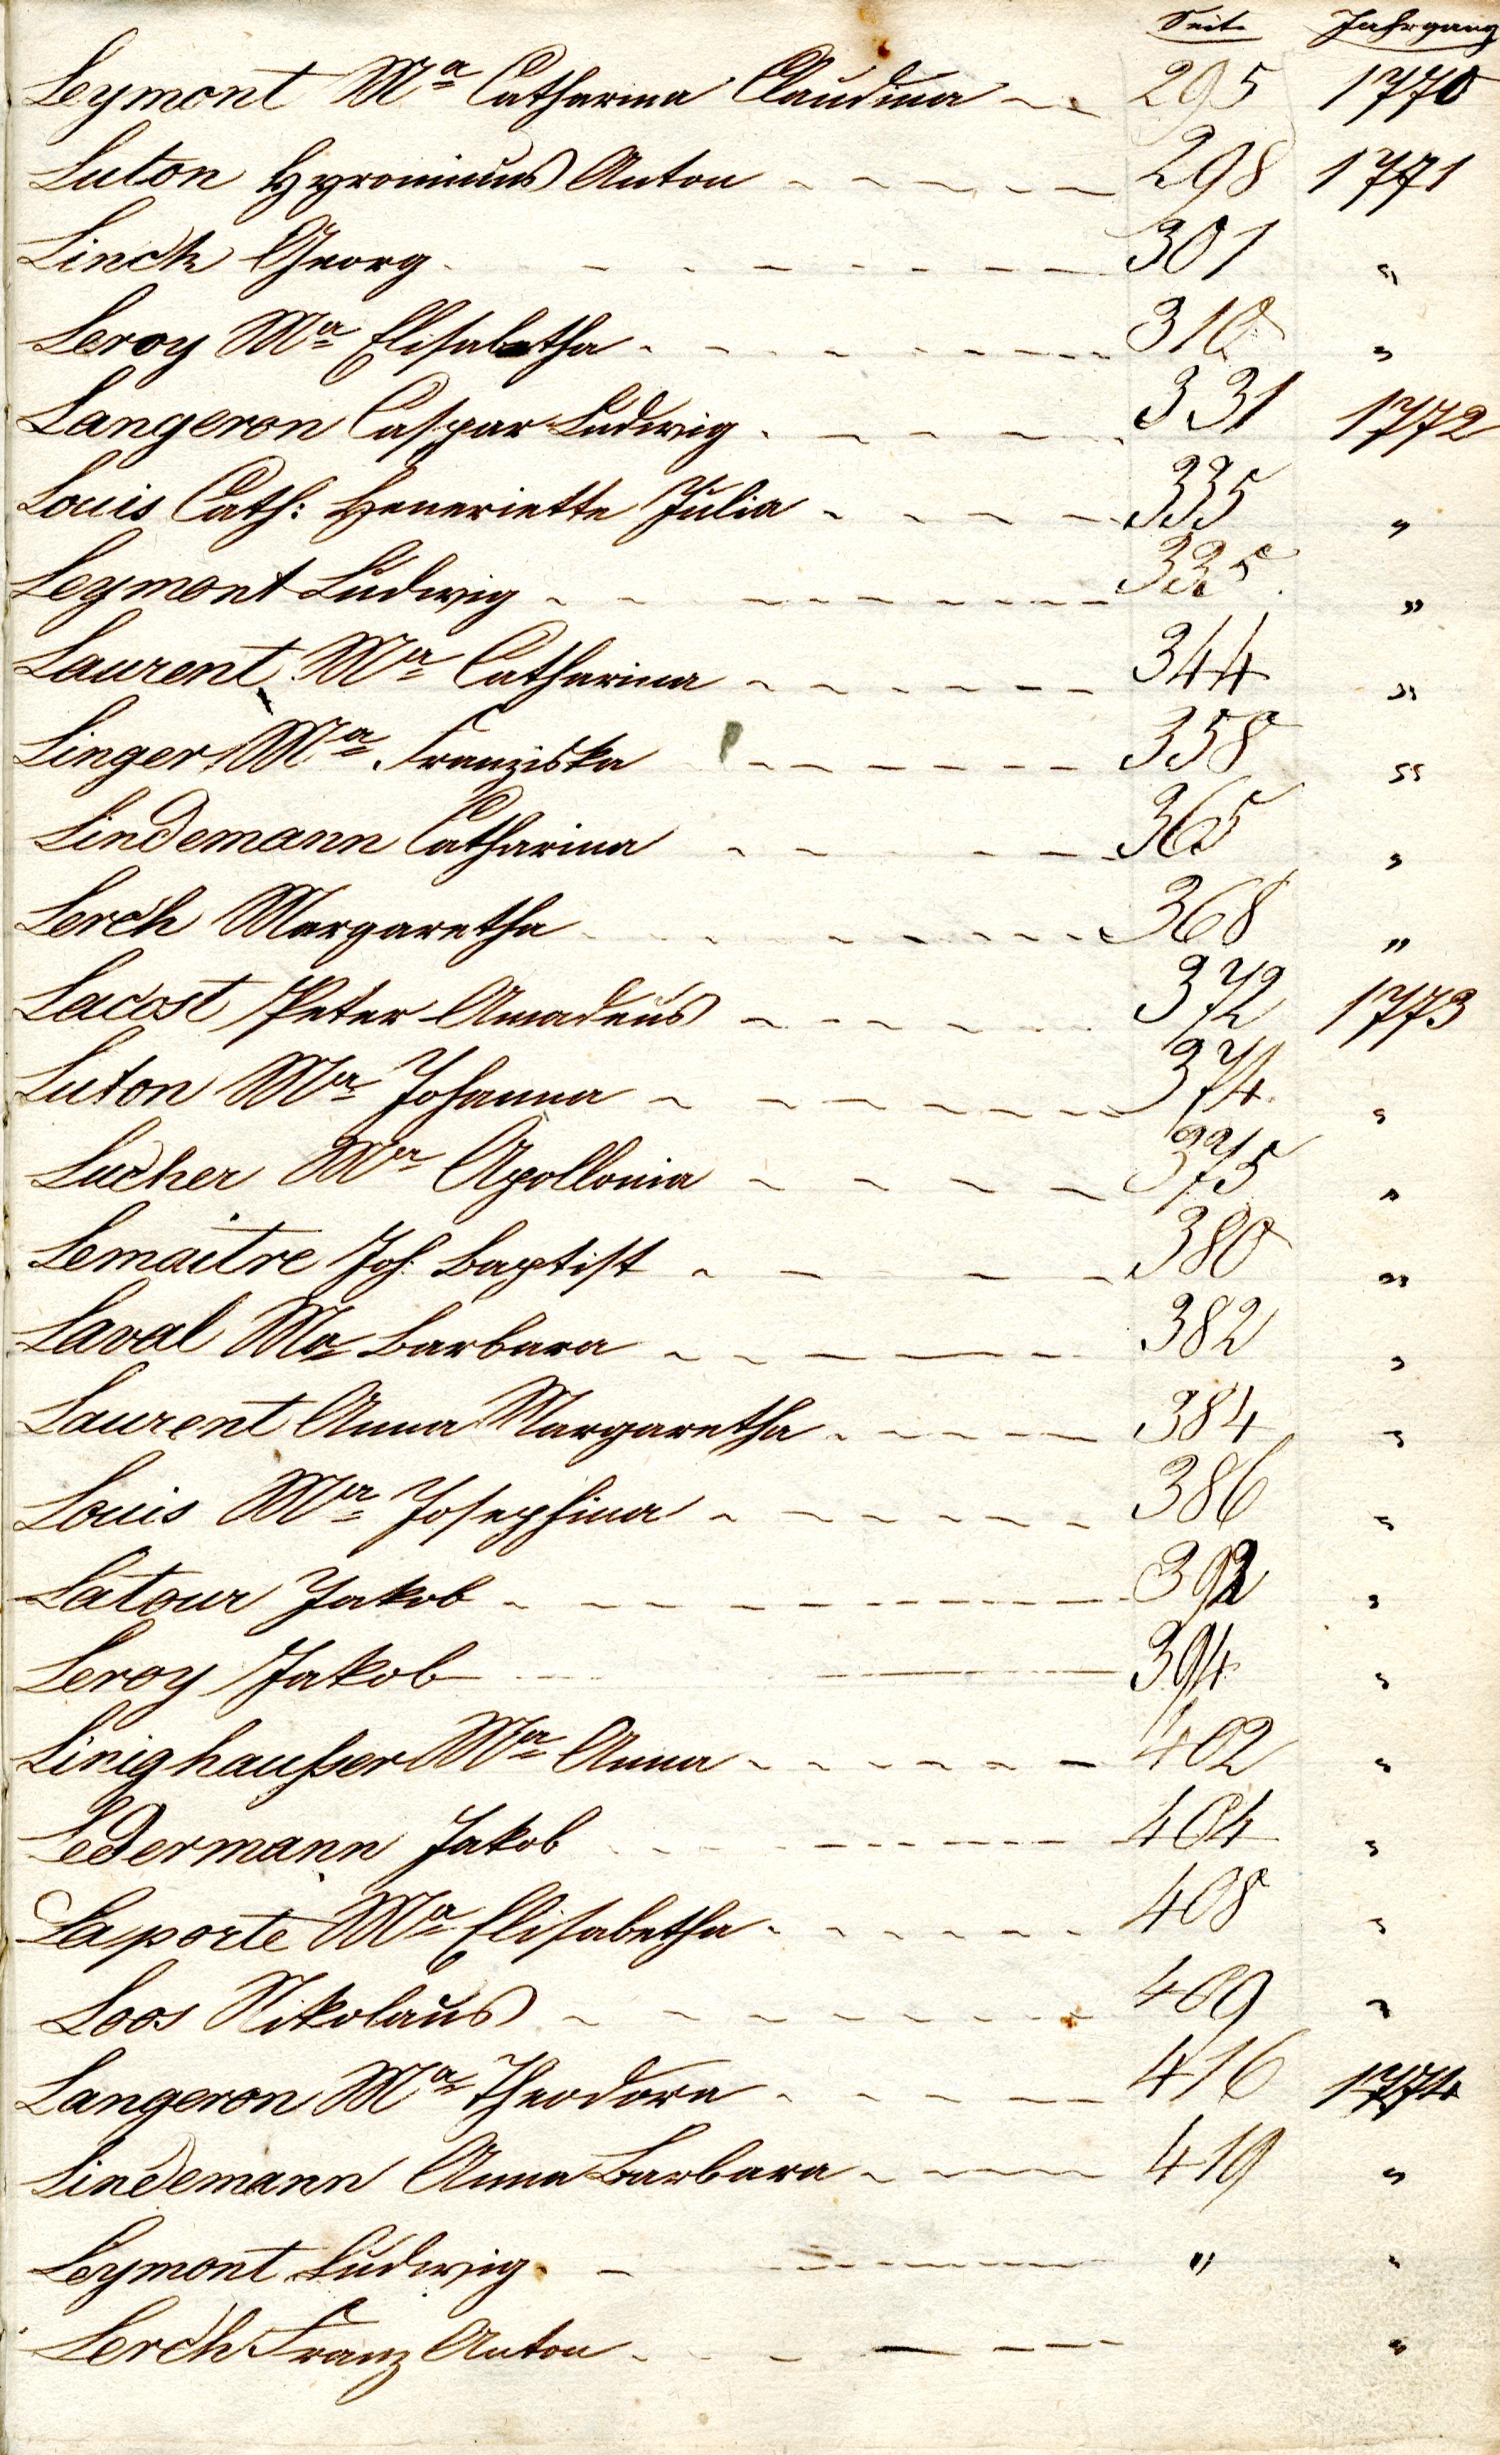 Seite Jahrgang
Leymont Ma Catharina Claudina 295 1770
Luton Hyronimus Anton 298 1771
Linck Georg 301 "
Leroy Ma Elisabetha 310 "
Langeron Caspar Ludwig 331 1772
Louis Cath: Heneriette Julia 335 "
Leymont Ludwig 335 "
Laurent Ma Catharina 344 "
Linger Ma Franziska 358 "
Lindemann Catharina 365 "
Lerch Margaretha 368 "
Lacost Peter Amadeus 372 1773
Luton Ma Johanna 374 "
Lucher Ma Apollonia 375 "
Lemaitre Joh. Baptist 380 "
Laval Ma Barbara 382 "
Laurent Anna Margaretha 384 "
Louis Ma Josephina 386 "
Latour Jakob 392 "
Leroy Jakob 394 "
Linighaußer Ma Anna 402 "
Ledermann Jakob 404 "
Laporte Ma Elisabetha 408 "
Loos Nikolaus 409 "
Langeron Ma Theodora 416 1774
Lindemann Anna Barbara 419 "
Leymont Ludwig " "
Lerch Franz Anton "